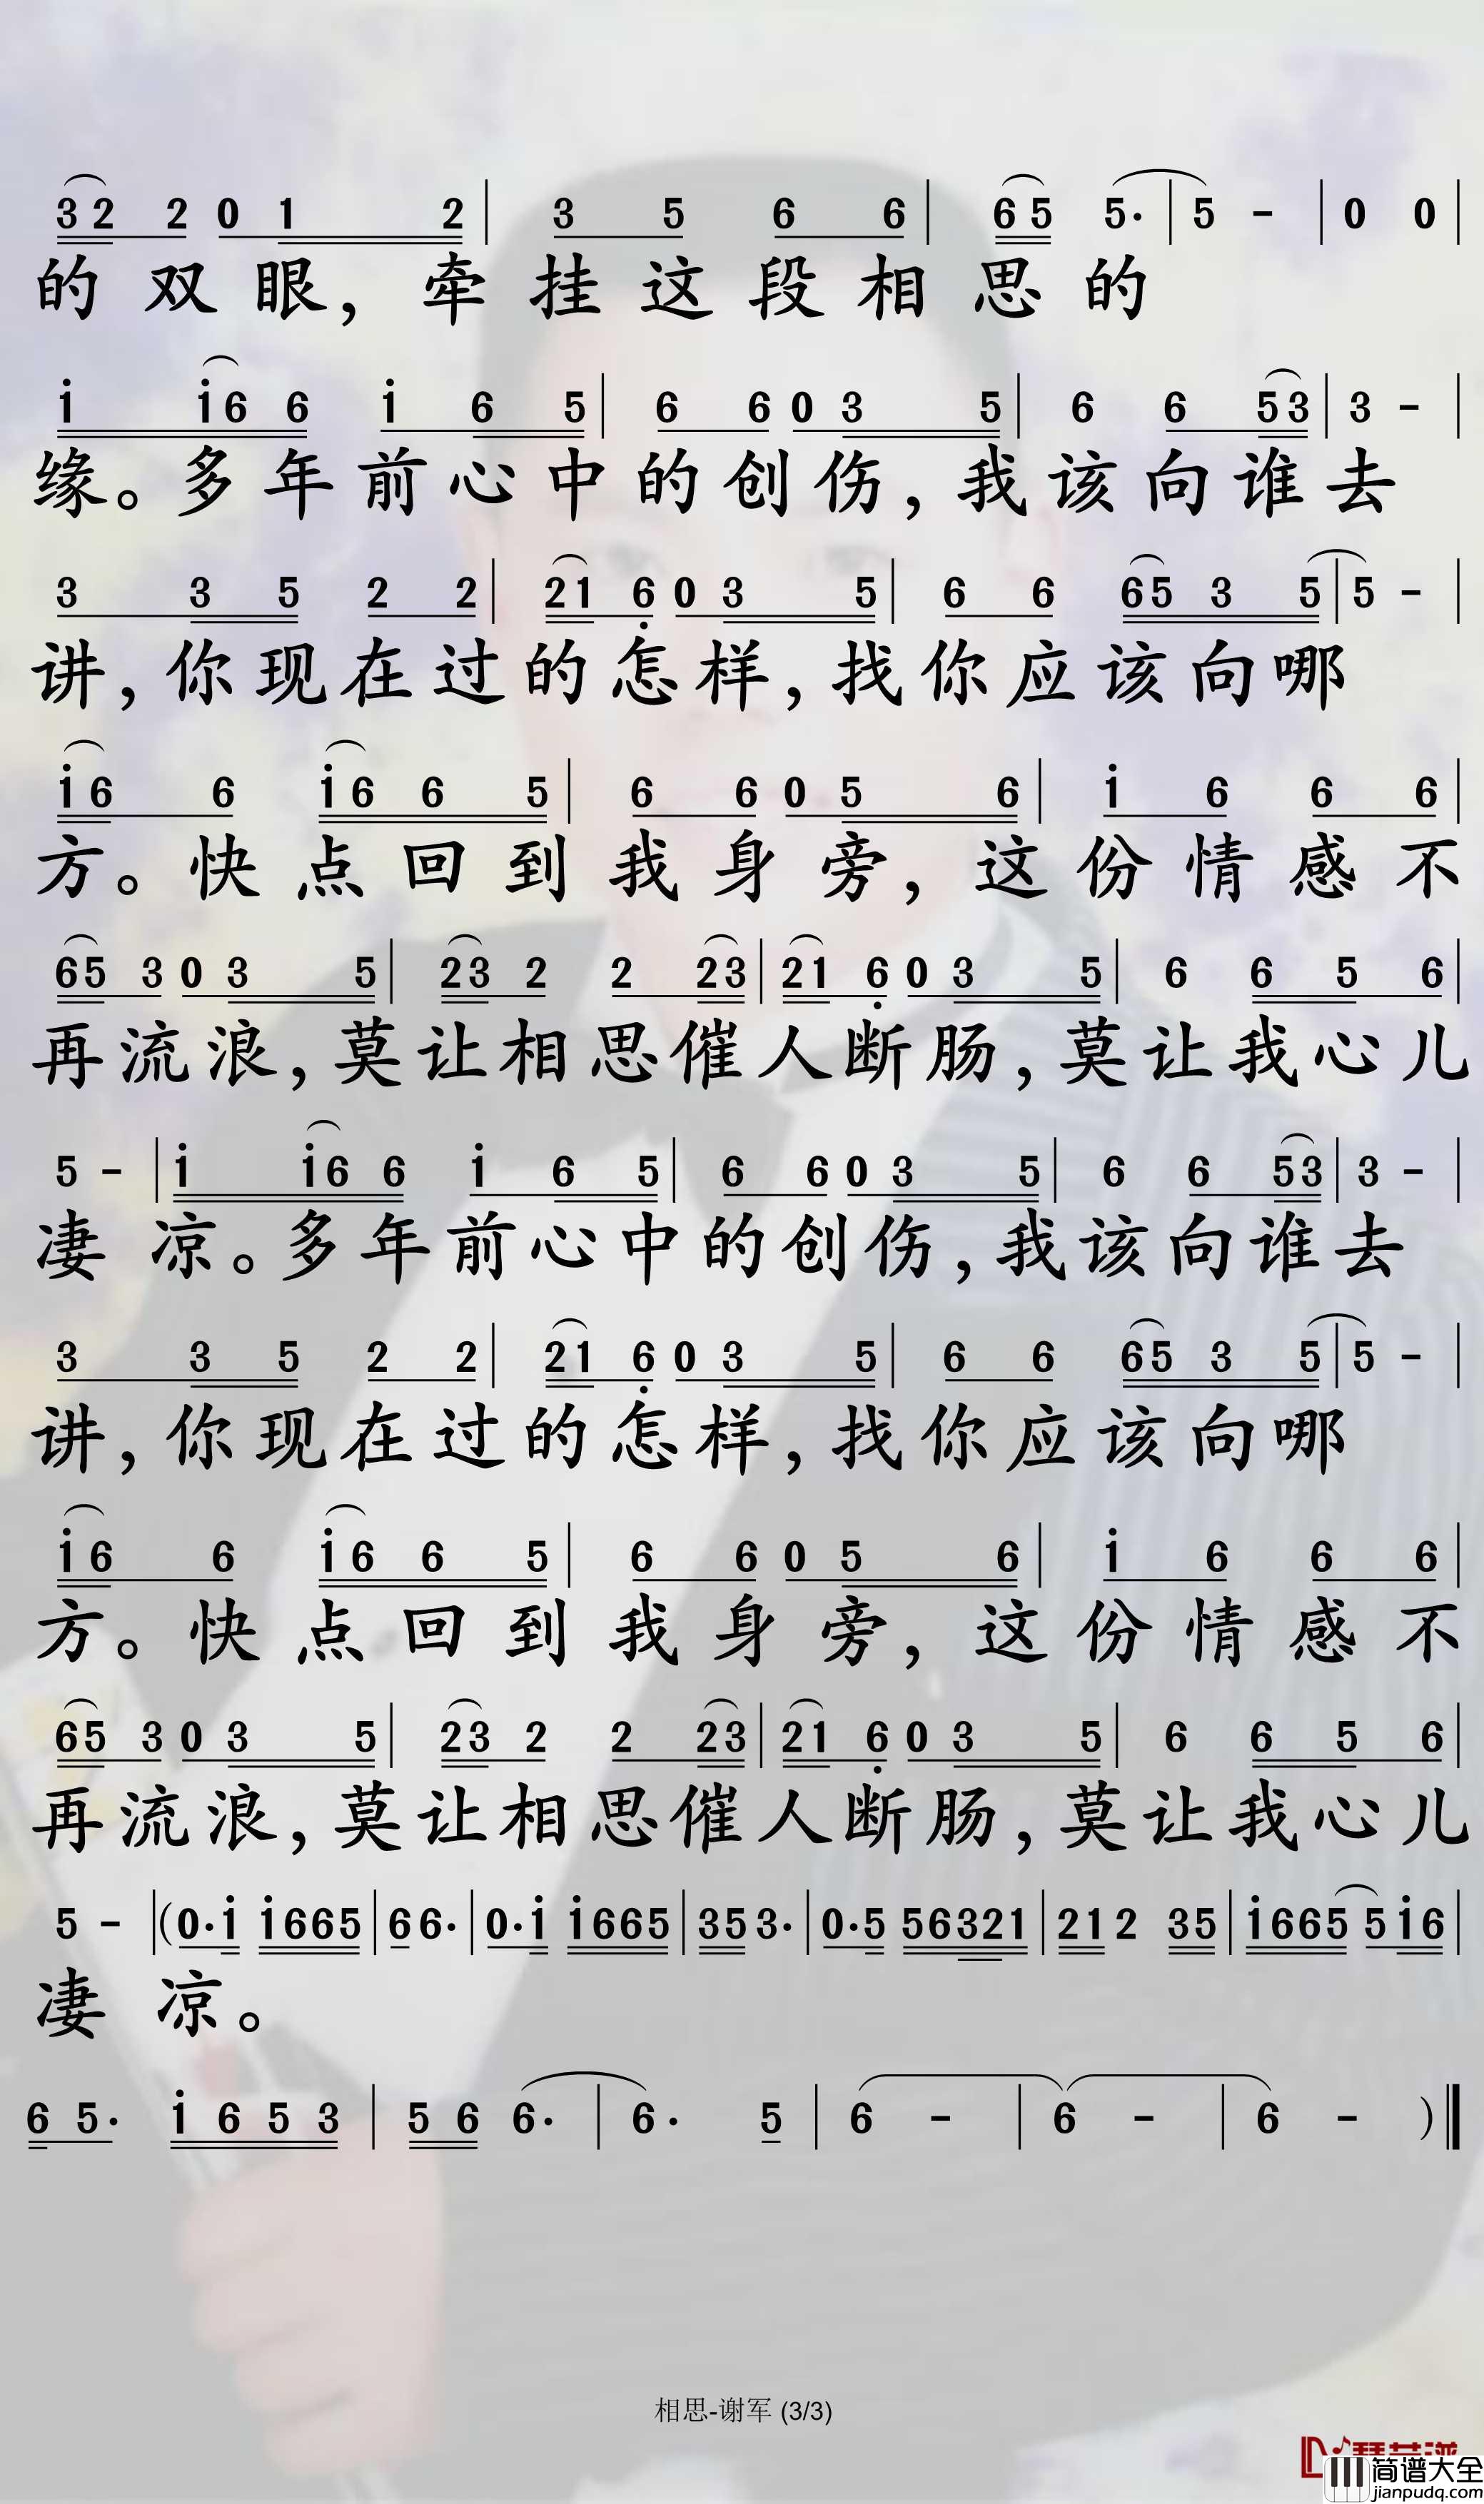 3 2 2 0 1 2 | 3 5 6 6 | 6 5 5· | 5 - | 0 0 |
的双眼，牵挂这段相思的
i i 6 6 i 6 5 | 6 6 0 3 5 | 6 6 5 3 | 3 - |
缘。多年前心中的创伤，我该向谁去
3 3 5 2 2 | 2 1 6 0 3 5 | 6 6 6 5 3 5 | 5 - |
讲，你现在过的怎样，找你应该向哪
i 6 6 i 6 6 5 | 6 6 0 5 6 | i 6 6 6 |
方。快点回到我身旁，这份情感不
6 5 3 0 3 5 | 2 3 2 2 2 3 | 2 1 6 0 3 5 | 6 6 5 6 |
再流浪，莫让相思催人断肠，莫让我心儿
5 - | i i 6 6 i 6 5 | 6 6 0 3 5 | 6 6 5 3 | 3 - |
凄凉。多年前心中的创伤，我该向谁去
3 3 5 2 2 | 2 1 6 0 3 5 | 6 6 6 5 3 5 | 5 - |
讲，你现在过的怎样，找你应该向哪
i 6 6 i 6 6 5 | 6 6 0 5 6 | i 6 6 6 |
方。快点回到我身旁，这份情感不
6 5 3 0 3 5 | 2 3 2 2 2 3 | 2 1 6 0 3 5 | 6 6 5 6 |
再流浪，莫让相思催人断肠，莫让我心儿
5 - | (0· i i 6 6 5 | 6 6· | 0· i i 6 6 5 | 3 5 3· | 0· 5 5 6 3 2 1 | 2 1 2 3 5 | i 6 6 5 5 i 6 |
凄凉。
6 5· i 6 5 3 | 5 6 6· | 6· 5 | 6 - | 6 - | 6 - )
相思-谢军 (3/3)
简谱大全
jianpudq.com